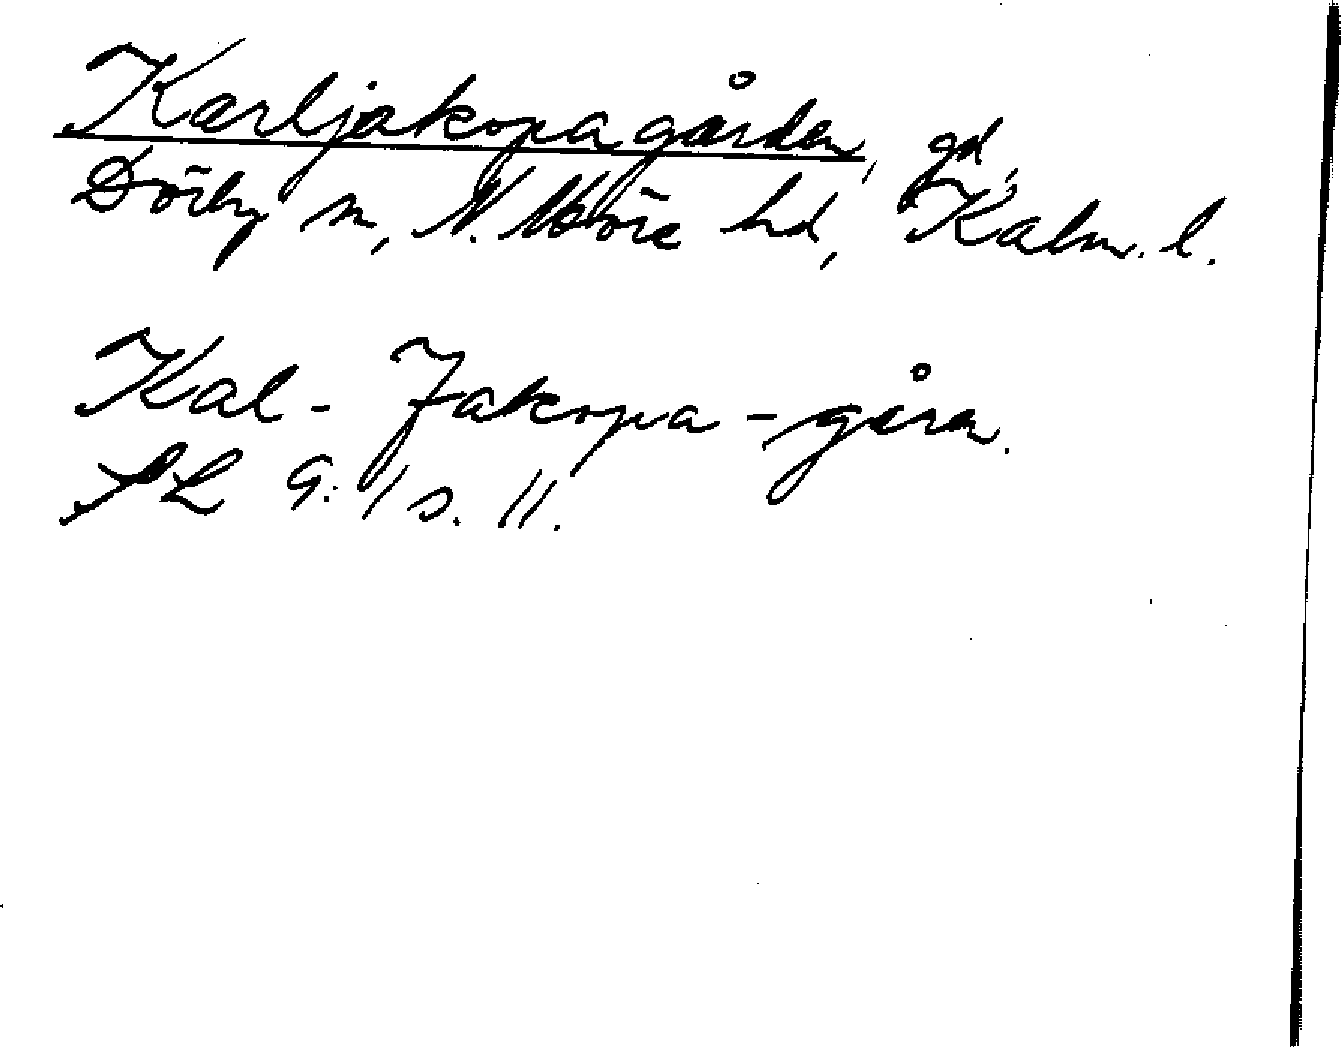 Karljakopagården, gd,
Dörby sn, N. Möre hd, Kalm. l.
Kal - Jakopa - gårn.
SL G: 1 s. 11.